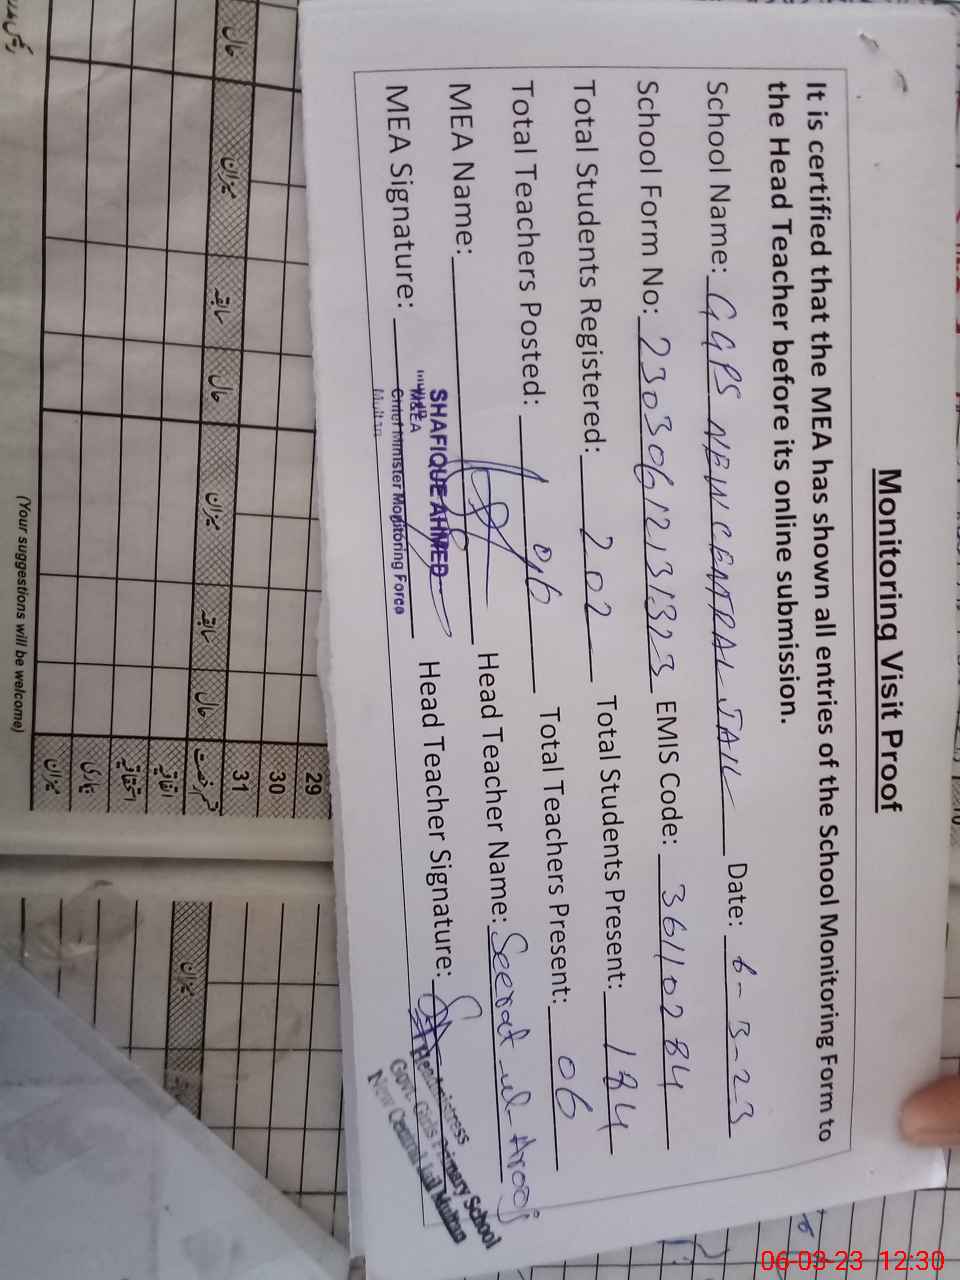 Monitoring Visit Proof
It is certified that the MEA has shown all entries of the School Monitoring Form to
the Head Teacher before its online submission.
School Name: GGPS NEW CENTRAL JAIL Date: 6-3-23
School Form No: 23030612131323 EMIS Code: 36110284
Total Students Registered: 202 Total Students Present: 184
Total Teachers Posted: 06 Total Teachers Present: 06
MEA Name: Head Teacher Name: Seerat ul Arooj
MEA Signature: Head Teacher Signature:
SHAFIQUE AHMED
M&EA
Chief Minister Monitoring Force
Multan
Headmistress
Govt. Girls Primary School
New Central Jail Multan
29
30
31
حال میزان سابقہ حال میزان سابقہ حال قسم رخصت
اتفاقیہ
استحقاقیہ
بیماری
میزان
میزان
(Your suggestions will be welcome)
06-03-23 12:30